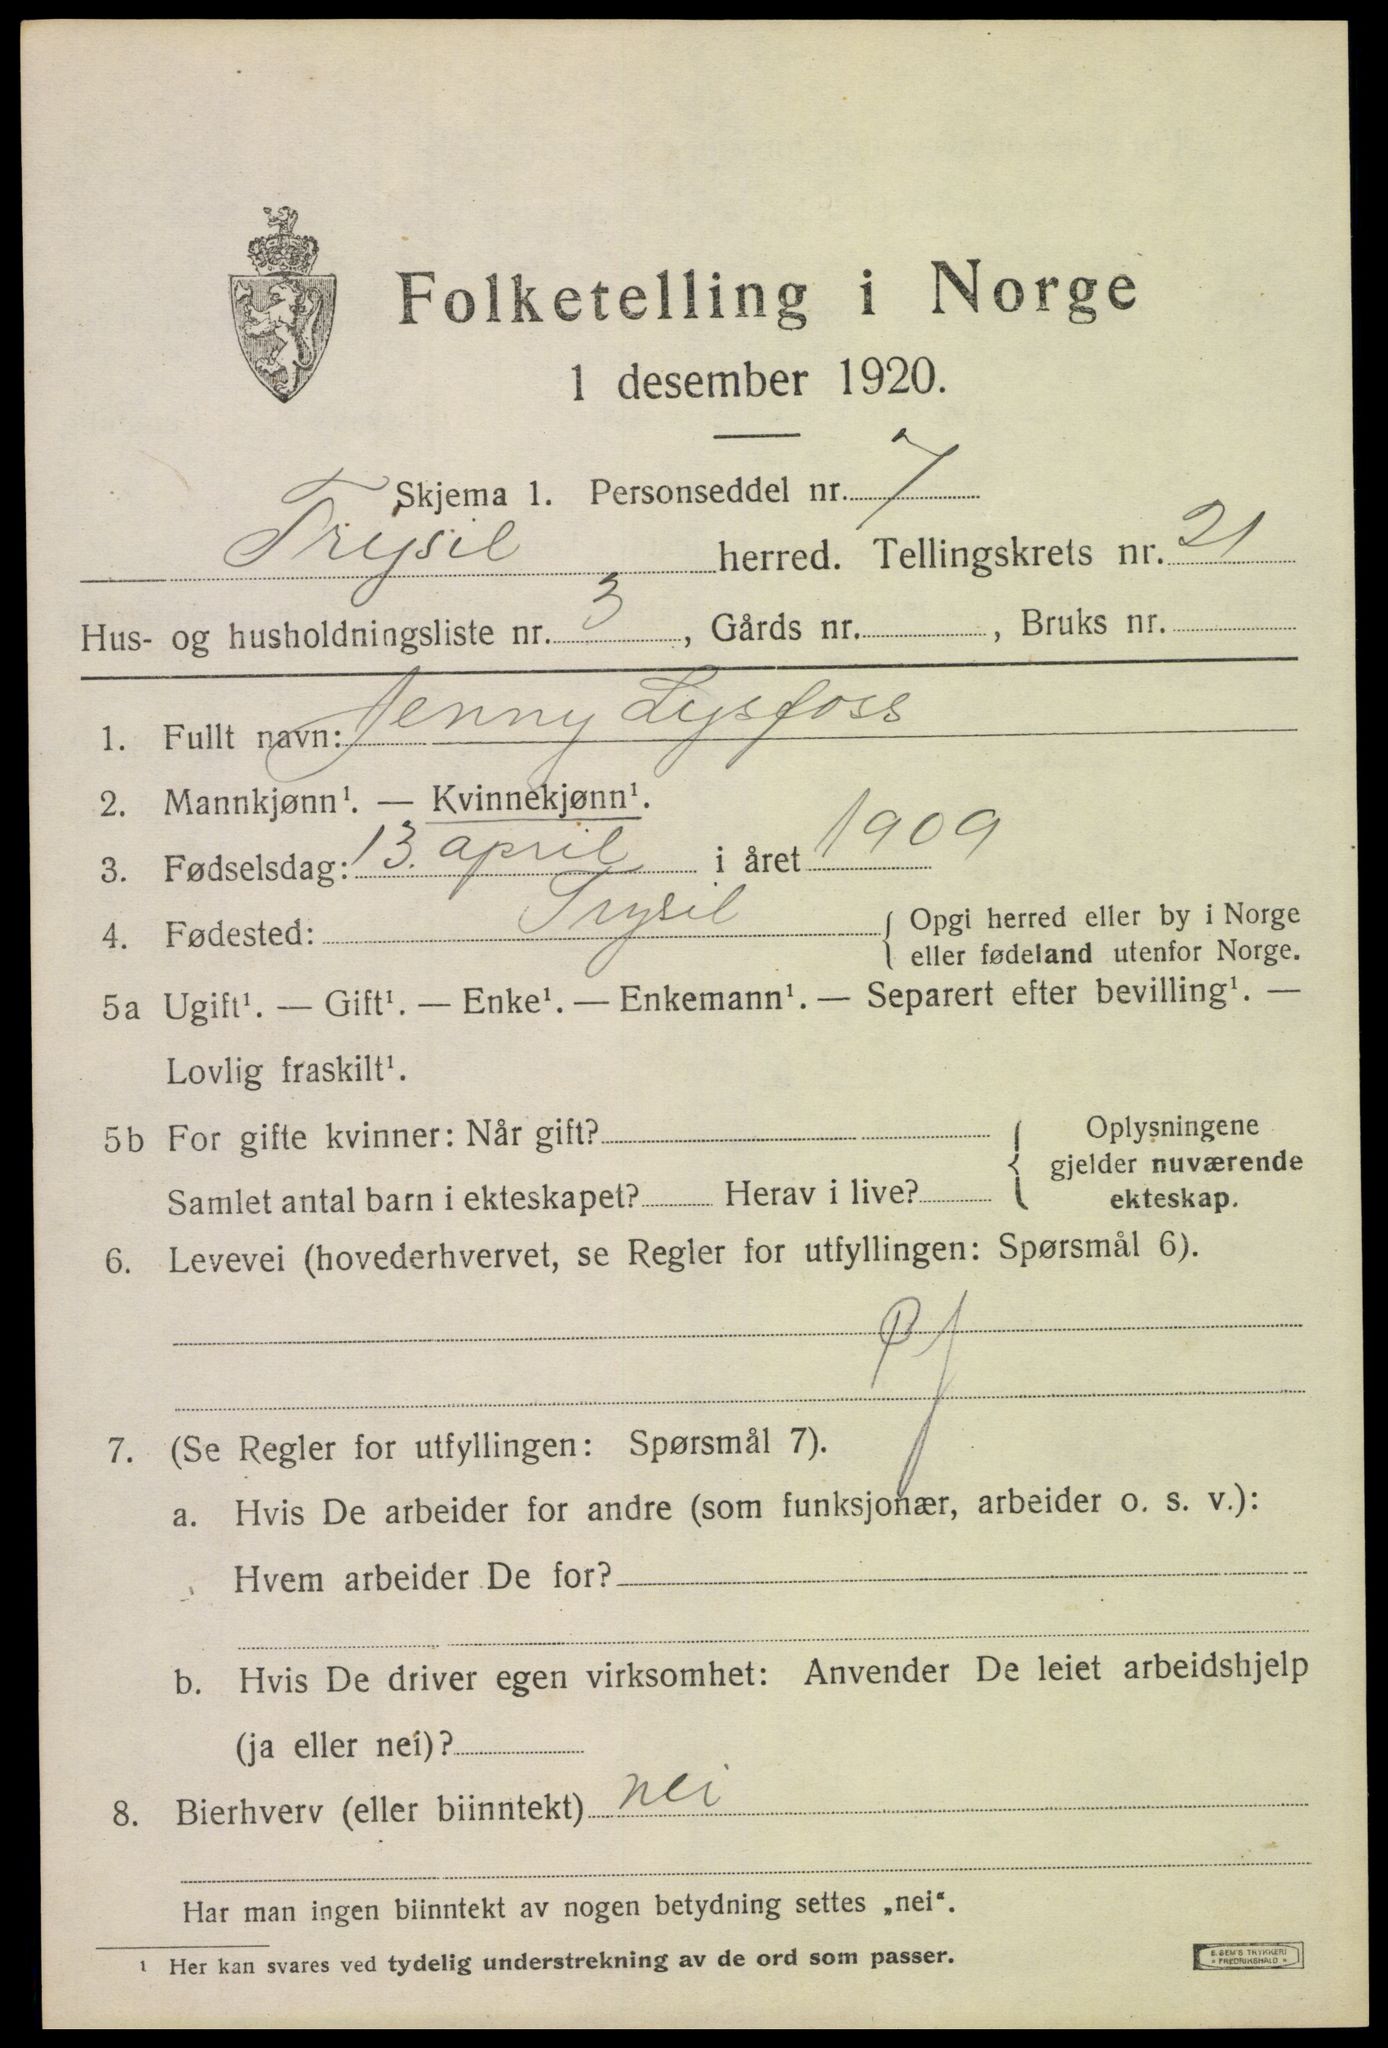 Folketelling i Norge
1 desember 1920.
Skjema 1. Personseddel nr. 7
Trysil herred. Tellingskrets nr. 21
Hus- og husholdningsliste nr. 3, Gårds nr. , Bruks nr.
1. Fullt navn: Jenny Lysfoss
2. Mannkjønn¹. — Kvinnekjønn¹.
3. Fødselsdag: 13. april i året 1909
4. Fødested: Trysil { Opgi herred eller by i Norge
eller fødeland utenfor Norge.
5a Ugift¹. — Gift¹. — Enke¹. — Enkemann¹. — Separert efter bevilling¹. —
Lovlig fraskilt¹.
5b For gifte kvinner: Når gift?
Samlet antal barn i ekteskapet? Herav i live?
{ Oplysningene
gjelder nuværende
ekteskap.
6. Levevei (hovederhvervet, se Regler for utfyllingen: Spørsmål 6).
7. (Se Regler for utfyllingen: Spørsmål 7).
a. Hvis De arbeider for andre (som funksjonær, arbeider o. s. v.):
Hvem arbeider De for?
b. Hvis De driver egen virksomhet: Anvender De leiet arbeidshjelp
(ja eller nei)?
8. Bierhverv (eller biinntekt) nei
Har man ingen biinntekt av nogen betydning settes „nei“.
¹ Her kan svares ved tydelig understrekning av de ord som passer.
E. SEM'S TRYKKERI
* FREDRIKSHALD *